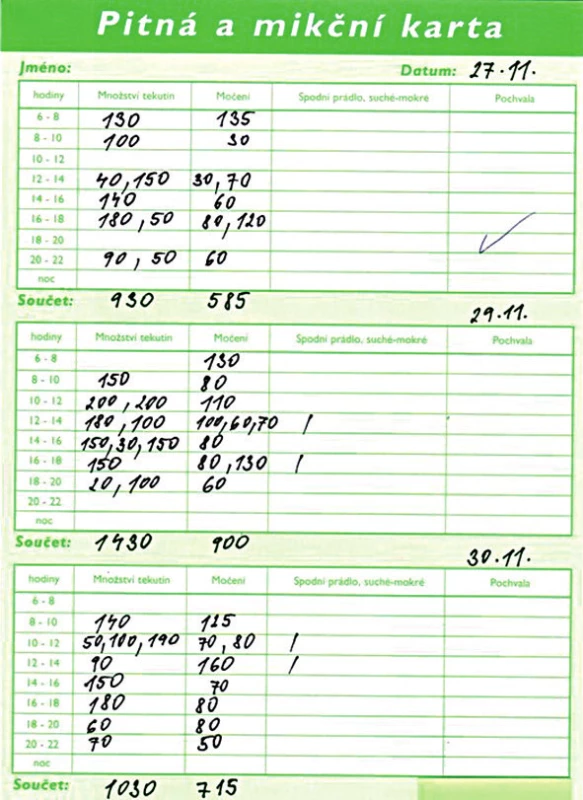 Pitná a mikční karta
Jméno: Datum: 27.11.
hodiny Množství tekutin Močení Spodní prádlo, suché-mokré Pochvala
6 - 8 130 135
8 - 10 100 30
10 - 12
12 - 14 40, 150 30, 70
14 - 16 140 60
16 - 18 180, 50 80, 120
18 - 20
20 - 22 90, 50 60
noc
Součet: 930 585
29.11.
hodiny Množství tekutin Močení Spodní prádlo, suché-mokré Pochvala
6 - 8 130
8 - 10 150 80
10 - 12 200, 200 110
12 - 14 180, 100 100, 60, 70 /
14 - 16 150, 30, 150 80
16 - 18 150 80, 130 /
18 - 20 20, 100 60
20 - 22
noc
Součet: 1430 900
30.11.
hodiny Množství tekutin Močení Spodní prádlo, suché-mokré Pochvala
6 - 8
8 - 10 140 125
10 - 12 50, 100, 190 70, 80 /
12 - 14 90 160 /
14 - 16 150 70
16 - 18 180 80
18 - 20 60 80
20 - 22 70 50
noc
Součet: 1030 715